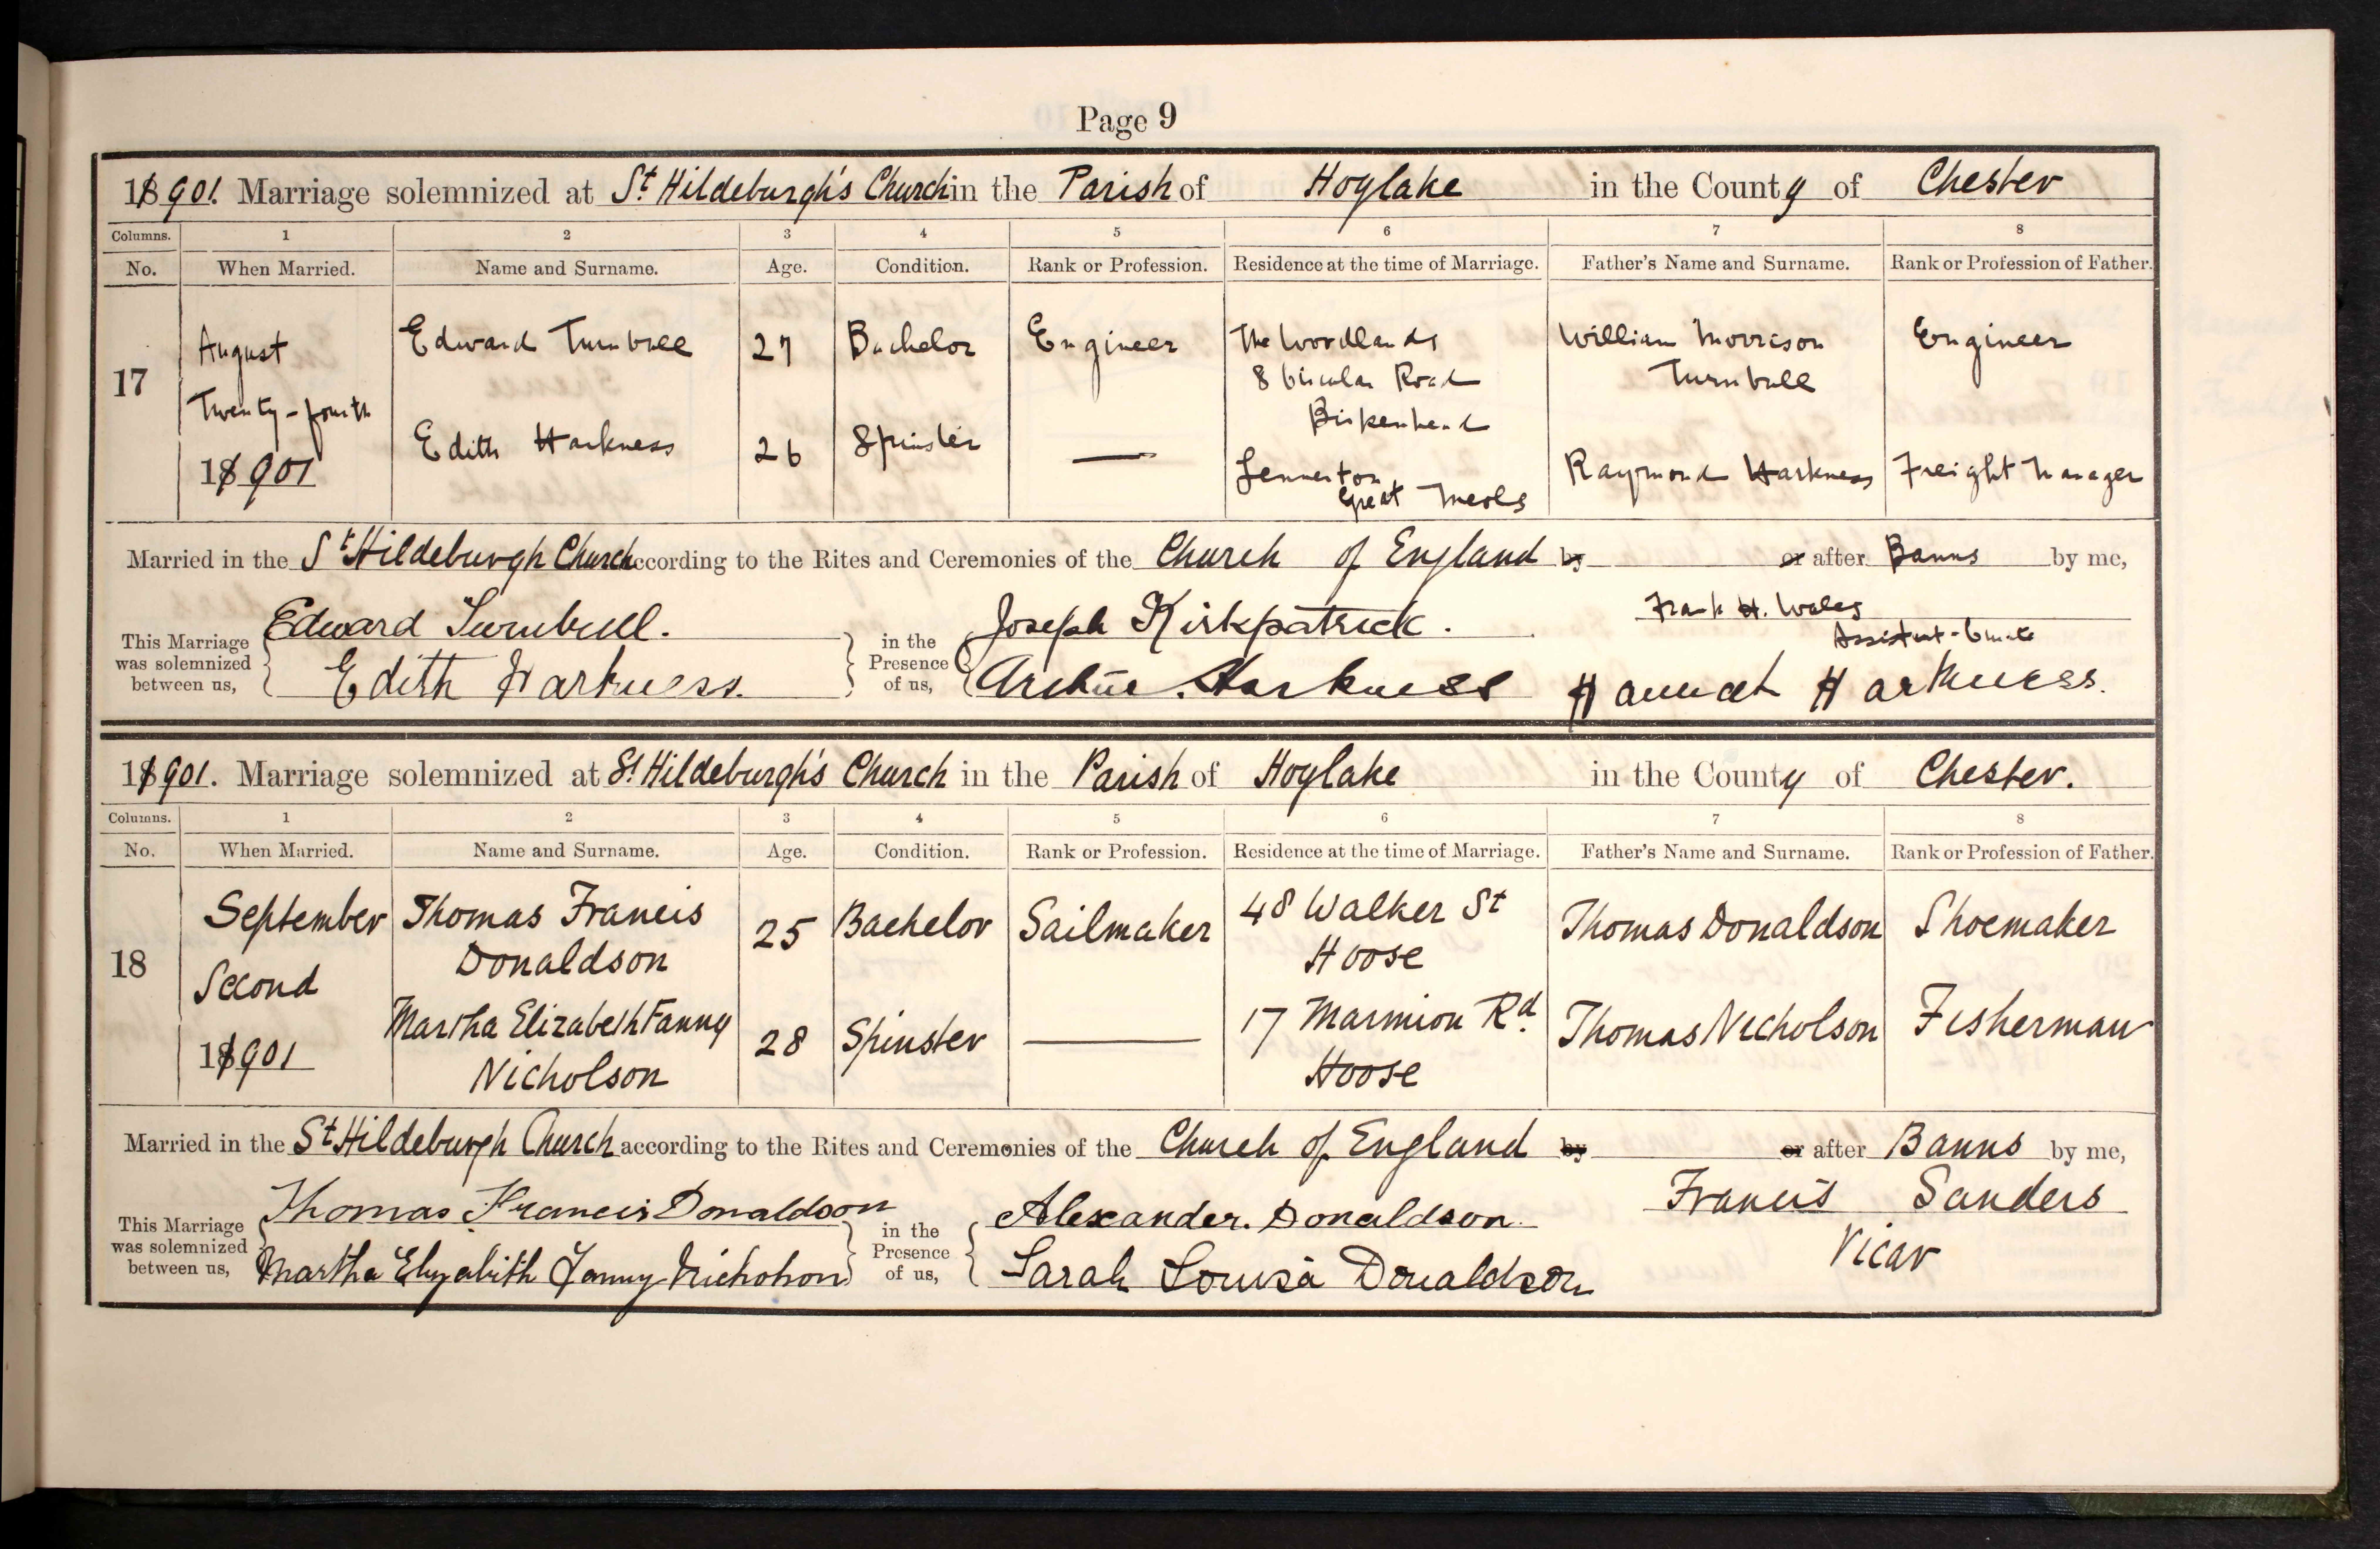 Page 9
1901. Marriage solemnized at St Hildeburgh's Church in the Parish of Hoylake in the County of Chester
Columns. 1 2 3 4 5 6 7 8
No. When Married. Name and Surname. Age. Condition. Rank or Profession. Residence at the time of Marriage. Father's Name and Surname. Rank or Profession of Father.
17 August Edward Turnbull 27 Bachelor Engineer The Woodlands William Morrison Engineer
8 Circular Road Turnbull
Twenty-fourth Birkenhead
1901 Edith Harkness 26 Spinster — Raymond Harkness Freight Manager
Great Meols
Married in the St Hildeburgh Church according to the Rites and Ceremonies of the Church of England by or after Banns by me,
This Marriage was solemnized between us, Edward Turnbull. in the Presence of us, Joseph Kirkpatrick. Frank H. Wales
Assistant-Curate
Edith Harkness. Harkness Hannah Harkness.
1901. Marriage solemnized at St Hildeburgh's Church in the Parish of Hoylake in the County of Chester.
Columns. 1 2 3 4 5 6 7 8
No. When Married. Name and Surname. Age. Condition. Rank or Profession. Residence at the time of Marriage. Father's Name and Surname. Rank or Profession of Father.
18 September Thomas Francis 25 Bachelor Sailmaker 48 Walker St Thomas Donaldson Shoemaker
Donaldson Hoose
Second
1901 Martha Elizabeth Fanny 28 Spinster — 17 Marmion Rd. Thomas Nicholson Fisherman
Nicholson Hoose
Married in the St Hildeburgh Church according to the Rites and Ceremonies of the Church of England by or after Banns by me,
This Marriage was solemnized between us, Thomas Francis Donaldson in the Presence of us, Alexander. Donaldson. Francis Sanders
Vicar
Martha Elizabith Fanny Nicholson Sarah Louisa Donaldson